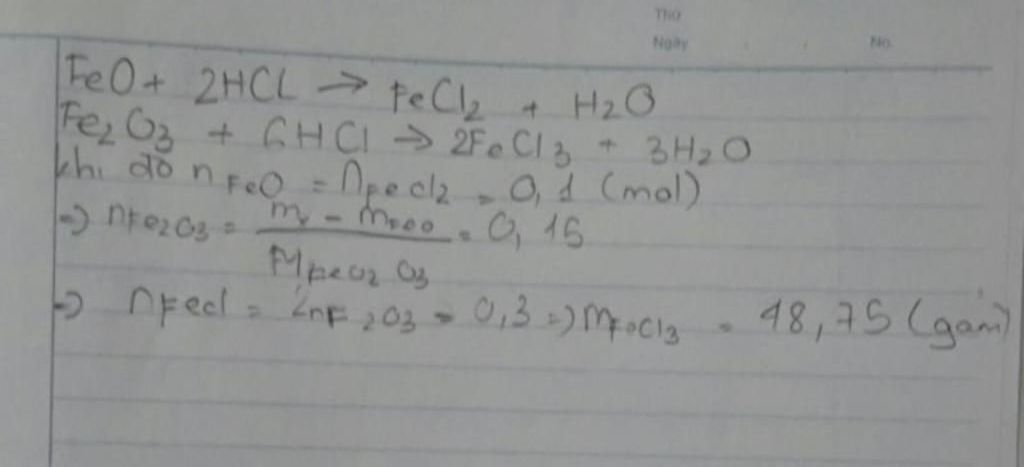 Thứ
Ngày No.
FeO + 2HCL → FeCl2 + H2O
Fe2O3 + 6HCl → 2FeCl3 + 3H2O
khi đó nFeO = nFeCl2 = 0,1 (mol)
=> nFe2O3 = (m - mFeO) / MFeO2O3 = 0,15
=> nFecl = 2nF2O3 = 0,3 => mFeCl3 = 48,75 (gam)